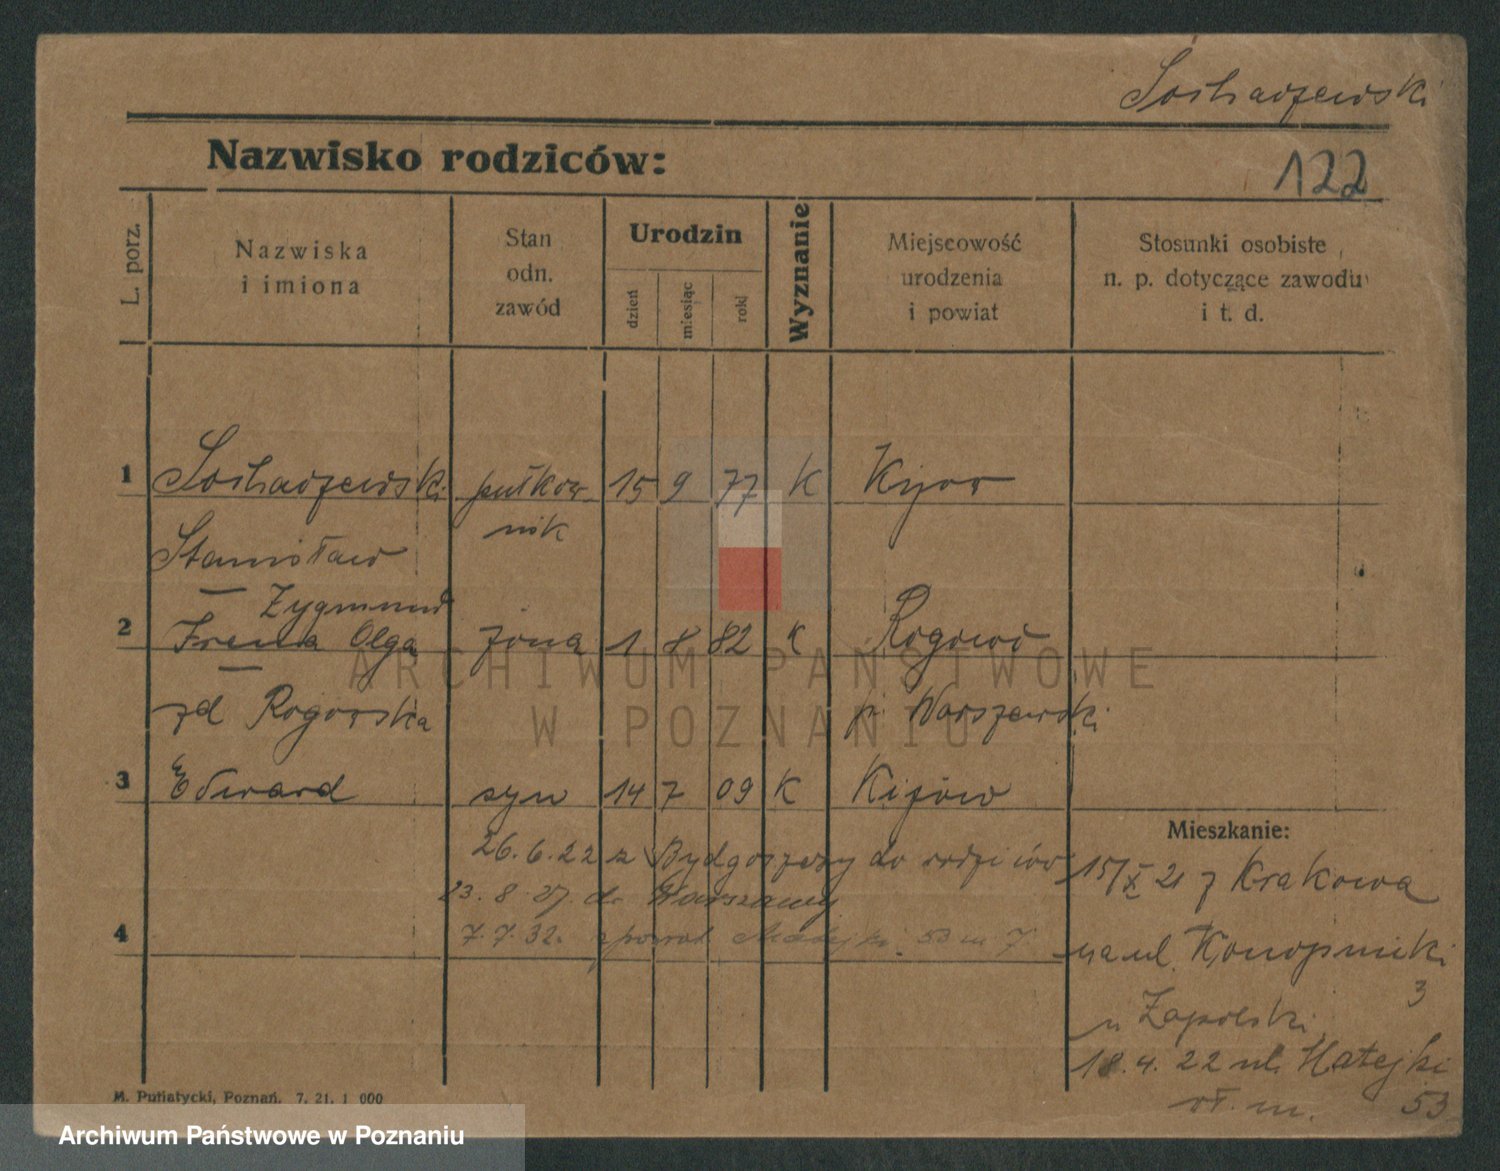 Sochaczewski
Nazwisko rodziców:
122
L. porz.
Nazwiska
i imiona
Stan
odn.
zawód
Urodzin
dzień
miesiąc
rok
Wyznanie
Miejscowość
urodzenia
i powiat
Stosunki osobiste
n. p. dotyczące zawodu
i t. d.
1 Sochaczewski pułkow- 15 9 77 K Kijow
nik
Stanisław
Zygmund
2 Irena Olga żona 1 8 82 K Rogowo
zd Rogorska p. Warszewski
3 Edward syn 14 7 09 K Kijów
Mieszkanie:
26.6.22 z Bydgoszczy do rodziców
15/X 21 z Krakowa
23.8.27. do Warszawy
4 7.7.32. spowrot Matejki 53 m 7
na ul. Konopnicki
3
u Zapolski
18.4.22 ul. Matejki
53
M. Putiatycki, Poznań. 7. 21. 1 000
ARCHIWUM PAŃSTWOWE
W POZNANIU
Archiwum Państwowe w Poznaniu